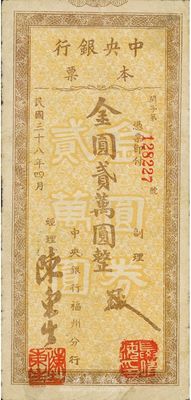 中央銀行
本票
閩字第 128227 號
憑票即付
金圓貳萬圓整
副理
中央銀行福州分行
經理
民國三十八年四月
金圓券
貳萬圓